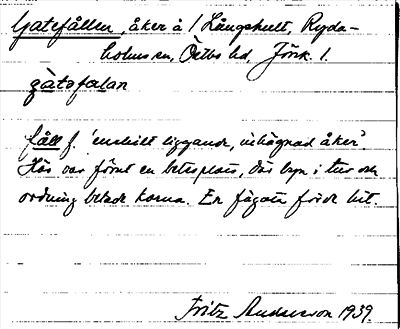 Gatefållen, åker å 1 Långhult, Ryda-
holms sn, Östbo hd, Jönk. l.
gàtəfælan
fåll f. 'enskilt liggande, inhägnad åker'.
Här var förut en betesplats, där byn i tur och
ordning betade korna. En fägata förde hit.
Fritz Andersson 1939.